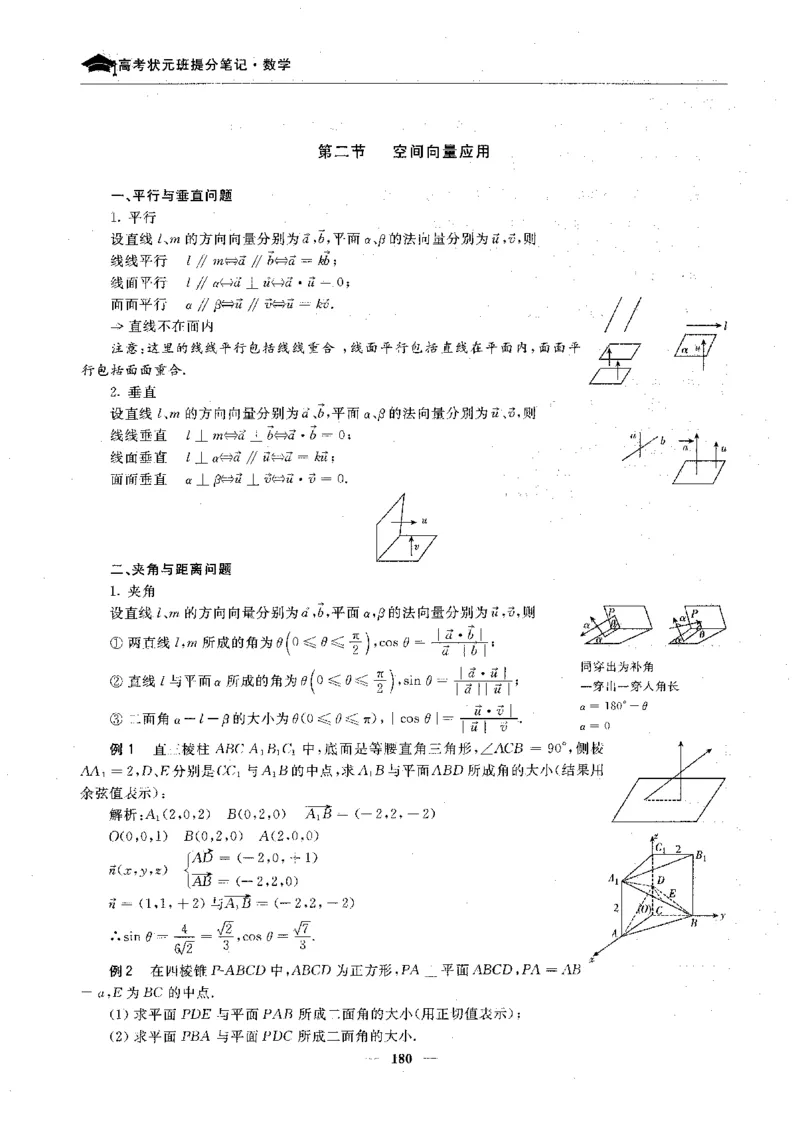 高考状元班提分笔记·数学
第二节 空间向量应用
一、平行与垂直问题
1. 平行
设直线 l、m 的方向向量分别为a⃗,b⃗,平面 α、β的法向量分别为u⃗,v⃗,则
线线平行 l∥m⇔a⃗∥b⃗⇔a⃗=kb⃗;
线面平行 l∥α⇔a⃗⊥u⃗⇔a⃗·u⃗=0;
面面平行 α∥β⇔u⃗∥v⃗⇔u⃗=kv⃗.
→直线不在面内
注意:这里的线线平行包括线线重合,线面平行包括直线在平面内,面面平
行包括面面重合.
l
α u
2. 垂直
设直线 l、m 的方向向量分别为a⃗、b⃗,平面 α、β的法向量分别为u⃗、v⃗,则
线线垂直 l⊥m⇔a⃗⊥b⃗⇔a⃗·b⃗=0;
线面垂直 l⊥α⇔a⃗∥u⃗⇔a⃗=ku⃗;
面面垂直 α⊥β⇔u⃗⊥v⃗⇔u⃗·v⃗=0.
a b a u
u
v
二、夹角与距离问题
1. 夹角
设直线 l、m 的方向向量分别为a⃗,b⃗,平面 α,β的法向量分别为u⃗,v⃗,则
① 两直线 l,m 所成的角为θ(0≤θ≤π/2),cos θ=|a⃗·b⃗|/a⃗ |b⃗|;
② 直线 l 与平面α 所成的角为θ(0≤θ≤π/2),sin θ=|a⃗·u⃗|/|a⃗||u⃗|;
③ 二面角 α-l-β的大小为θ(0≤θ≤π),|cos θ|=u⃗·v⃗|/|u⃗| v⃗.
同穿出为补角
一穿出一穿入角长
α=180°-θ
α=θ
例1 直三棱柱 ABC A₁B₁C₁ 中,底面是等腰直角三角形,∠ACB=90°,侧棱
AA₁=2,D、E分别是CC₁ 与A₁B的中点,求A₁B与平面ABD 所成角的大小(结果用
余弦值表示);
解析:A₁(2,0,2) B(0,2,0) A₁B⃗=(-2,2,-2)
O(0,0,1) B(0,2,0) A(2,0,0)
n⃗(x,y,z) {AD⃗=(-2,0,+1)
AB⃗=(-2,2,0)
n⃗=(1,1,+2)与A₁B⃗=(-2,2,-2)
∴sin θ=4/6√2=√2/3,cos θ=√7/3.
z C₁ 2 B₁
A₁ D E
2 (O) C B y
A
x
例2 在四棱锥 P-ABCD 中,ABCD 为正方形,PA⊥平面 ABCD,PA=AB
=a,E 为 BC 的中点.
(1) 求平面 PDE 与平面 PAB 所成二面角的大小(用正切值表示);
(2) 求平面 PBA 与平面 PDC 所成二面角的大小.
— 180 —